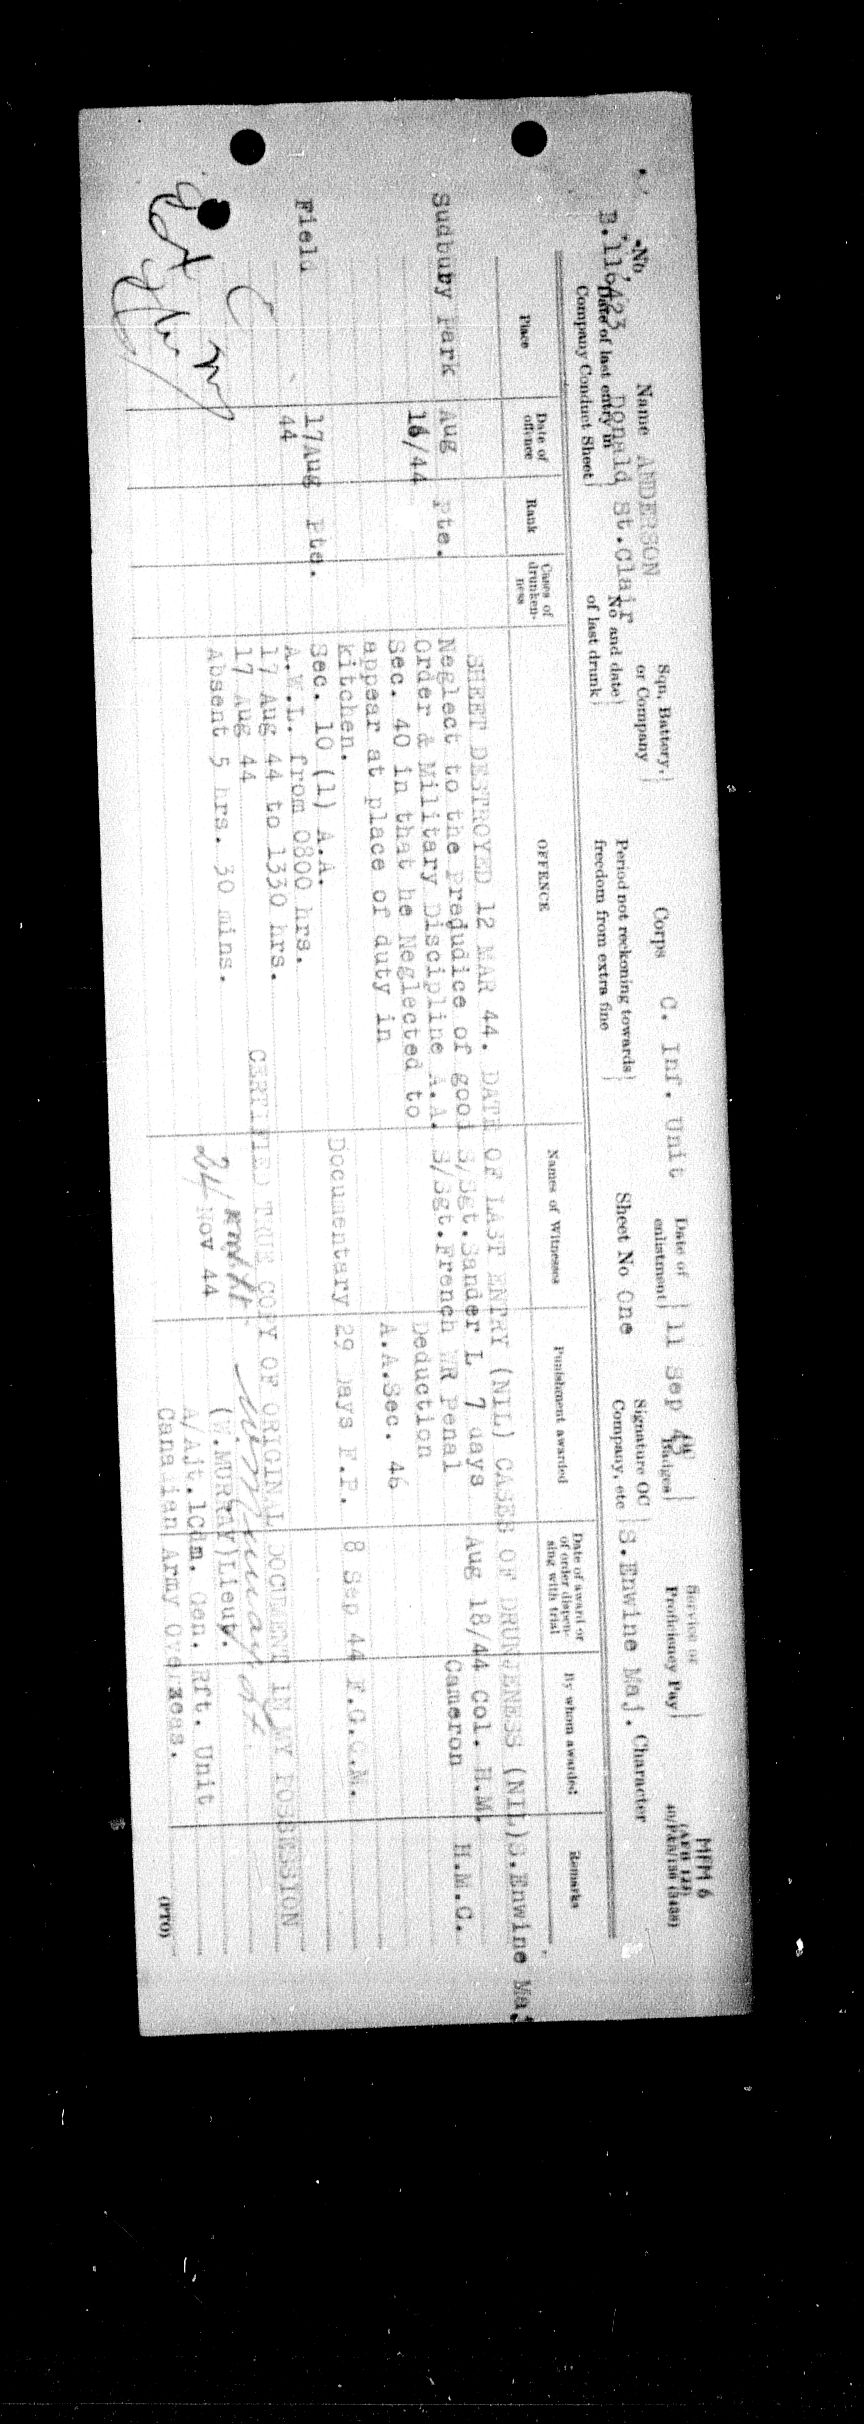 MFM 6
(AFB 122)
No. Name ANDERSON Sqn, Battery, or Company Corps C. Inf. Unit Date of enlistment 11 Sep 43 Badges Service or Proficiency Pay
B.116423 Donald St.Clair
Date of last entry in Company Conduct Sheet No and date of last drunk Period not reckoning towards freedom from extra fine Sheet No One Signature OC Company, etc S. Enwine Maj. Character
Place Date of offence Rank Cases of drunkenness OFFENCE Names of Witnesses Punishment awarded Date of award or of order dispensing with trial By whom awarded Remarks
SHEET DESTROYED 12 MAR 44. DATE OF LAST ENTRY (NIL) CASES OF DRUNKENESS (NIL) S.Enwine Maj
Sudbury Park Aug 16/44 Pte. Neglect to the predudice of good S/Sgt.Sander L 7 days Aug 18/44 Col. H.M. H.M.C.
Order & Military Discipline A.A. S/Sgt.French Penal Cameron
Sec. 40 in that he Neglected to Deduction
appear at place of duty in A.A.Sec. 46
kitchen.
Field 17Aug 44 Pte. Sec. 10 (1) A.A. Documentary 29 Days F.P. 8 Sep 44 F.G.C.M.
A.W.L. from 0800 hrs.
17 Aug 44 to 1330 hrs.
17 Aug 44 CERTIFIED TRUE COPY OF ORIGINAL DOCUMENT IN MY POSSESSION
Absent 5 hrs. 30 mins.
24 Nov 44 (W.MURRAY)Lieut.
A/Ajt. 1Cdn. Gen. Rft. Unit
Canadian Army Overseas.
(PTO)